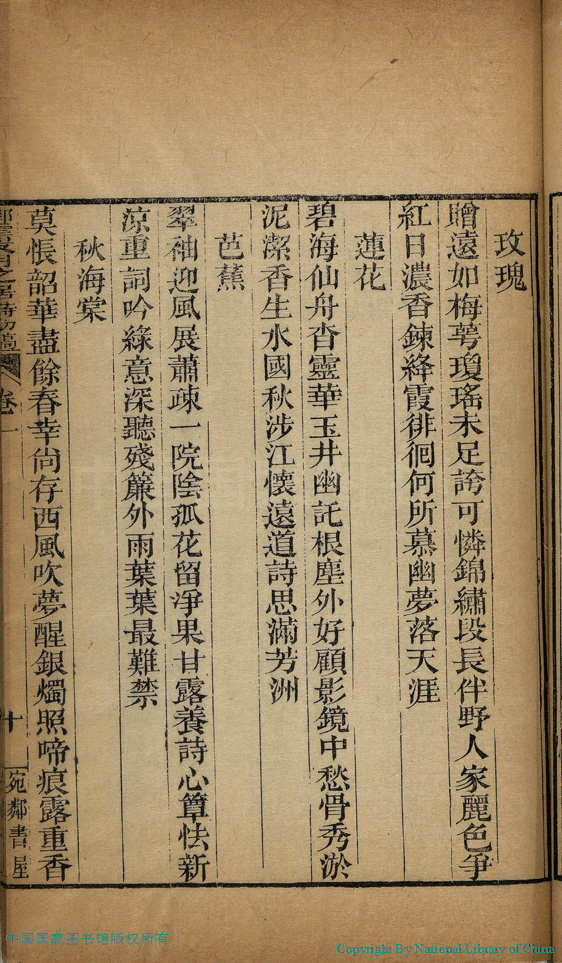 玫瑰
贈遠如梅萼瓊瑤未足誇可憐錦繡段長伴野人家麗色爭
紅日濃香鍊絳霞徘徊何所慕幽夢落天涯
蓮花
碧海仙舟杳靈華玉井幽託根塵外好顧影鏡中愁骨秀淤
泥潔香生水國秋涉江懷遠道詩思滿芳洲
芭蕉
翠袖迎風展蕭疎一院陰孤花留淨果甘露養詩心簟怯新
涼重詞吟綠意深聽殘簾外雨葉葉最難禁
秋海棠
莫悵韶華盡餘春幸尚存西風吹夢醒銀燭照啼痕露重香
卷一
十
宛鄰書屋
中国国家图书馆版权所有
Copyright By National Library of China